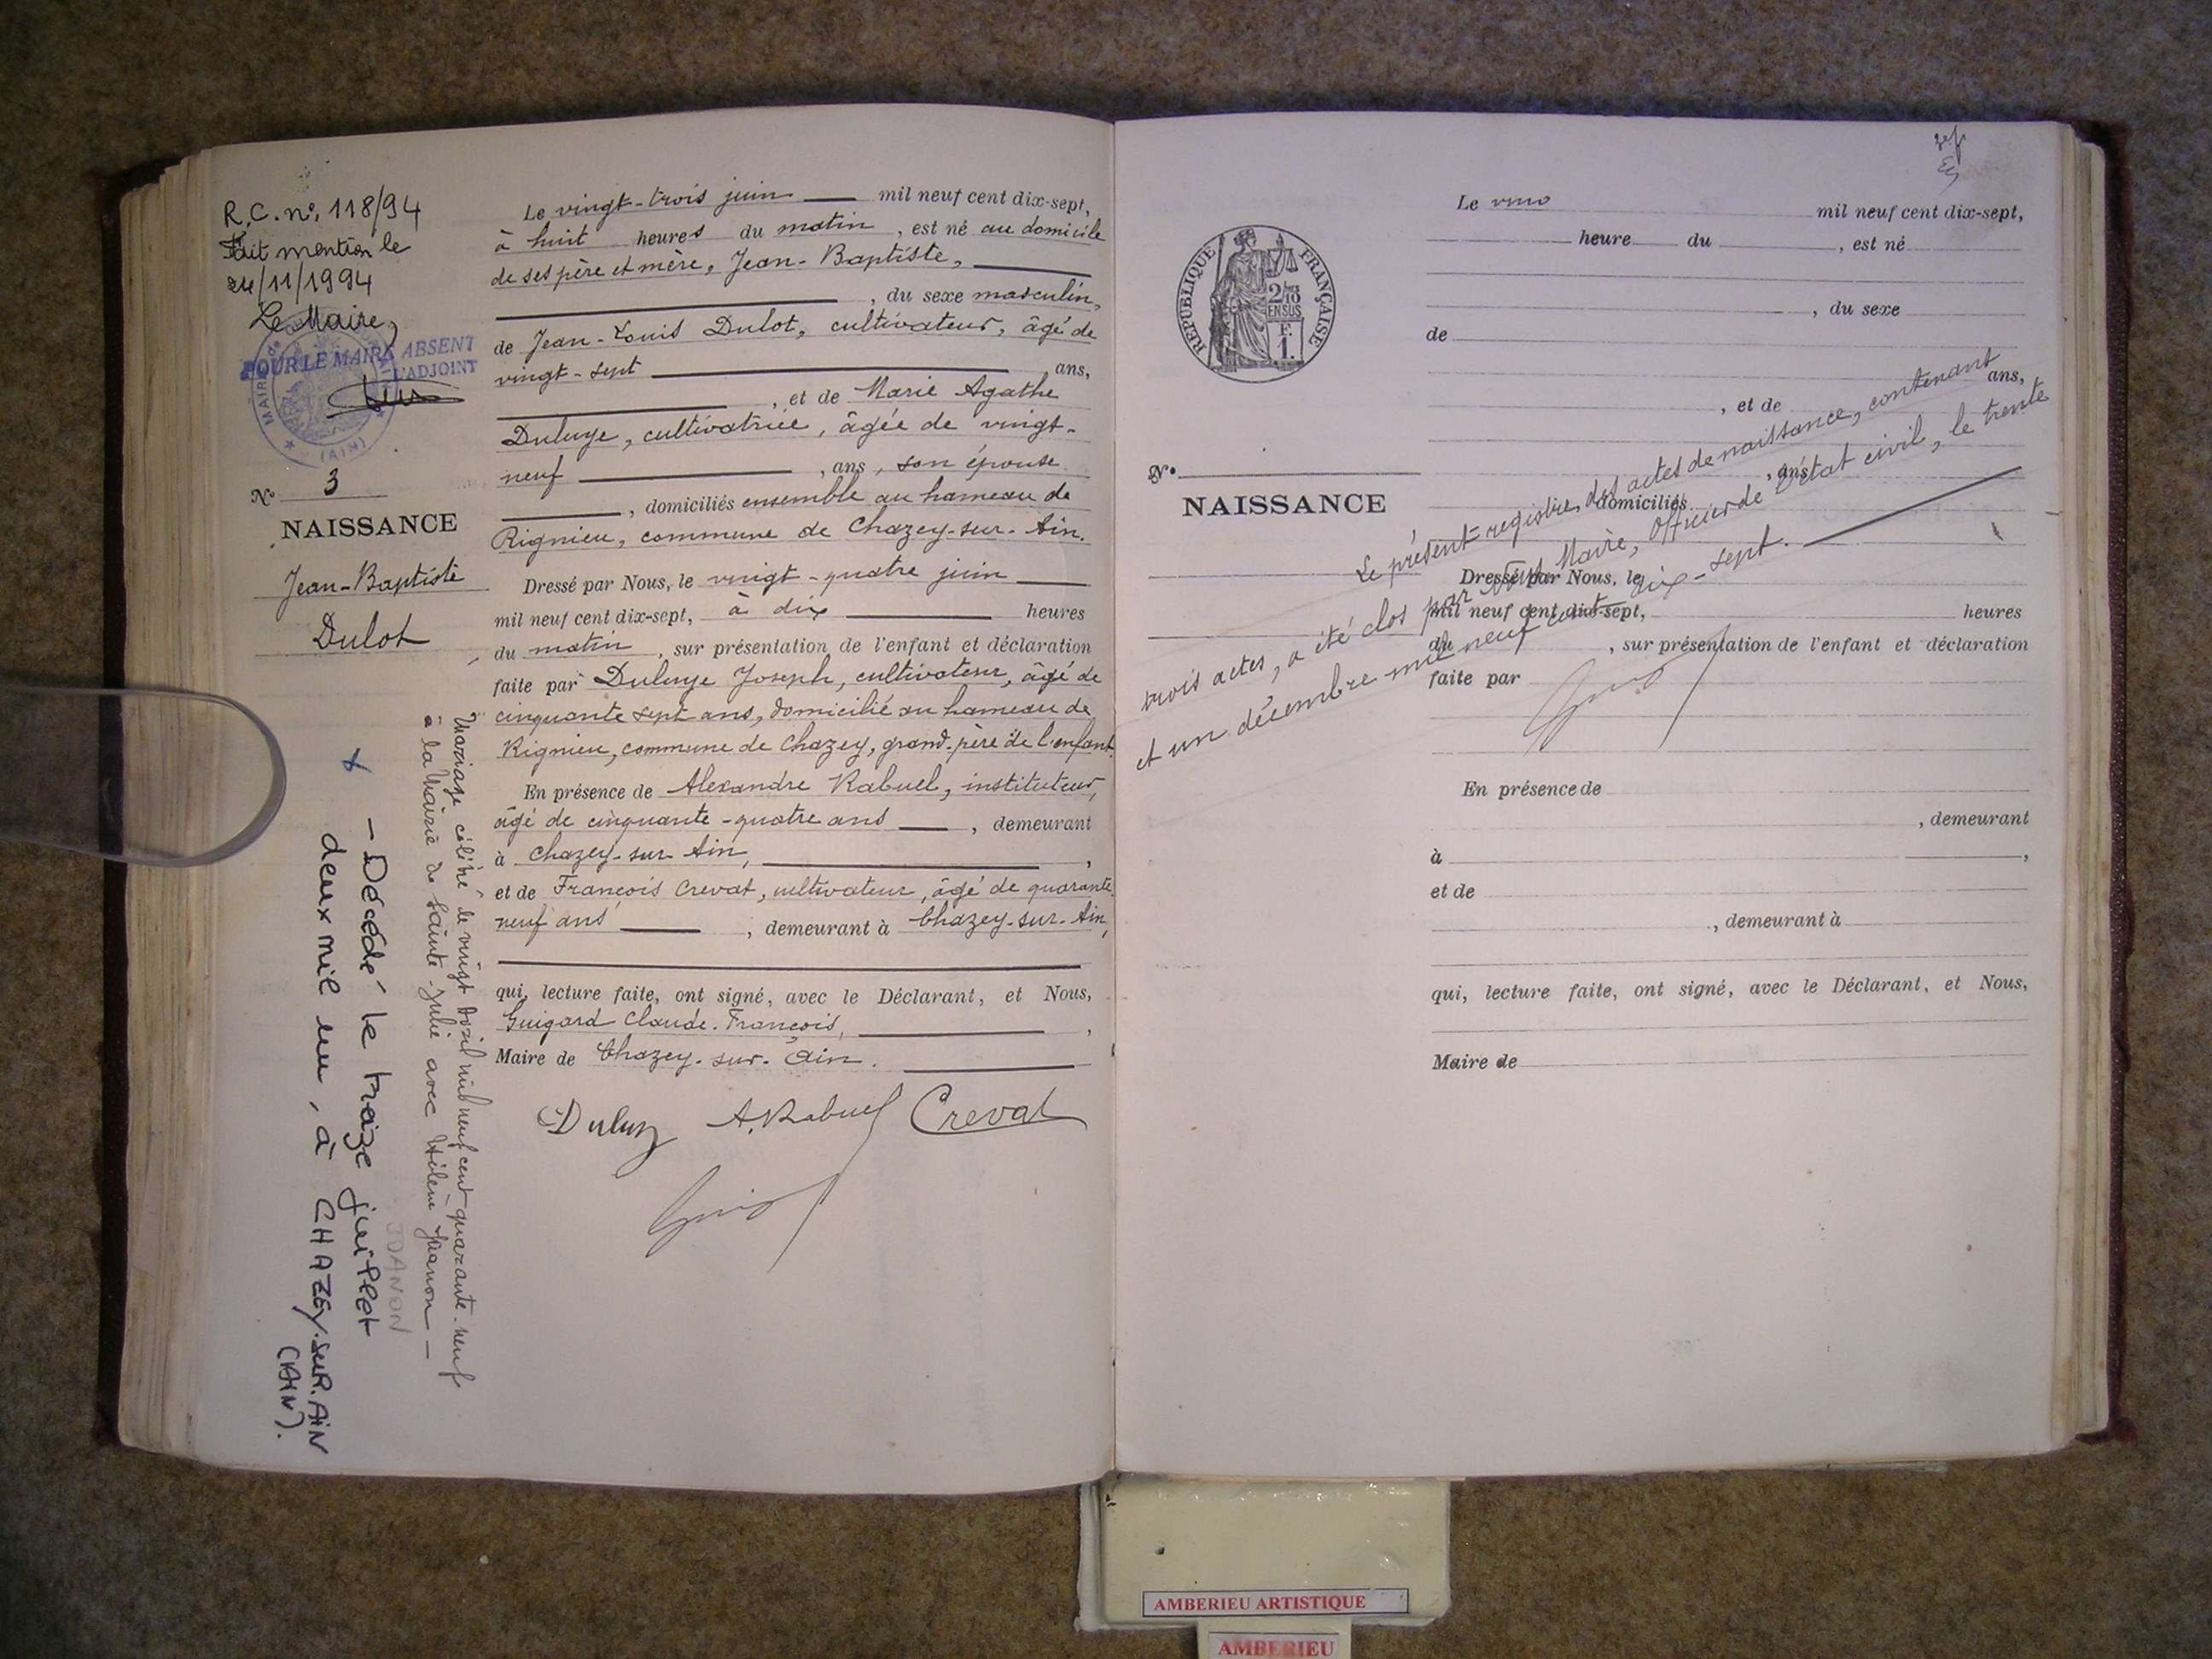 R.C. n°. 118/94
Fait mention le
24/11/1994
Le Maire,
POUR LE MAIRE ABSENT
L'ADJOINT
MAIRIE de
(AIN)
N° 3
NAISSANCE
Jean-Baptiste
Dulot
Le vingt-trois juin mil neuf cent dix-sept,
à huit heures du matin, est né au domicile
de ses père et mère, Jean-Baptiste,
, du sexe masculin,
de Jean-Louis Dulot, cultivateur, âgé de
vingt-sept ans,
, et de Marie Agathe
Duluye, cultivatrice, âgée de vingt-
neuf , ans, son épouse
, domiciliés ensemble au hameau de
Rignieu, commune de Chazey-sur-Ain.
Dressé par Nous, le vingt-quatre juin
mil neuf cent dix-sept, à dix heures
du matin, sur présentation de l'enfant et déclaration
faite par Duluye Joseph, cultivateur, âgé de
cinquante sept ans, domicilié au hameau de
Rignieu, commune de Chazey, grand-père de l'enfant.
En présence de Alexandre Rabuel, instituteur,
âgé de cinquante-quatre ans , demeurant
à Chazey-sur-Ain, ,
et de François Crevat, cultivateur, âgé de quarante
neuf ans , demeurant à Chazey-sur-Ain,
qui, lecture faite, ont signé, avec le Déclarant, et Nous,
Guigard Claude-François, ,
Maire de Chazey-sur-Ain.
Duluy A. Rabuel Crevat
Mariage célébré le vingt avril mil neuf cent quarante-neuf
à la Mairie de Sainte-Julie avec Hélène Joanon –
JOANON
– Décédé le treize juillet
deux mil un, à CHAZEY-SUR-AIN
(AIN).
REPUBLIQUE FRANÇAISE
2/10
EN SUS
F.
1.
N°
NAISSANCE
Le mil neuf cent dix-sept,
heure du , est né
, du sexe
de
ans,
, et de
, ans
domiciliés
Dressé par Nous, le
mil neuf cent dix-sept, heures
du , sur présentation de l'enfant et déclaration
faite par
En présence de
, demeurant
à ,
et de
, demeurant à
qui, lecture faite, ont signé, avec le Déclarant, et Nous,
Maire de
Le présent registre, des actes de naissance, contenant
trois actes, a été clos par Nous, Maire, Officier de l'état civil, le trente
et un décembre mil neuf cent dix-sept.
AMBERIEU ARTISTIQUE
AMBERIEU